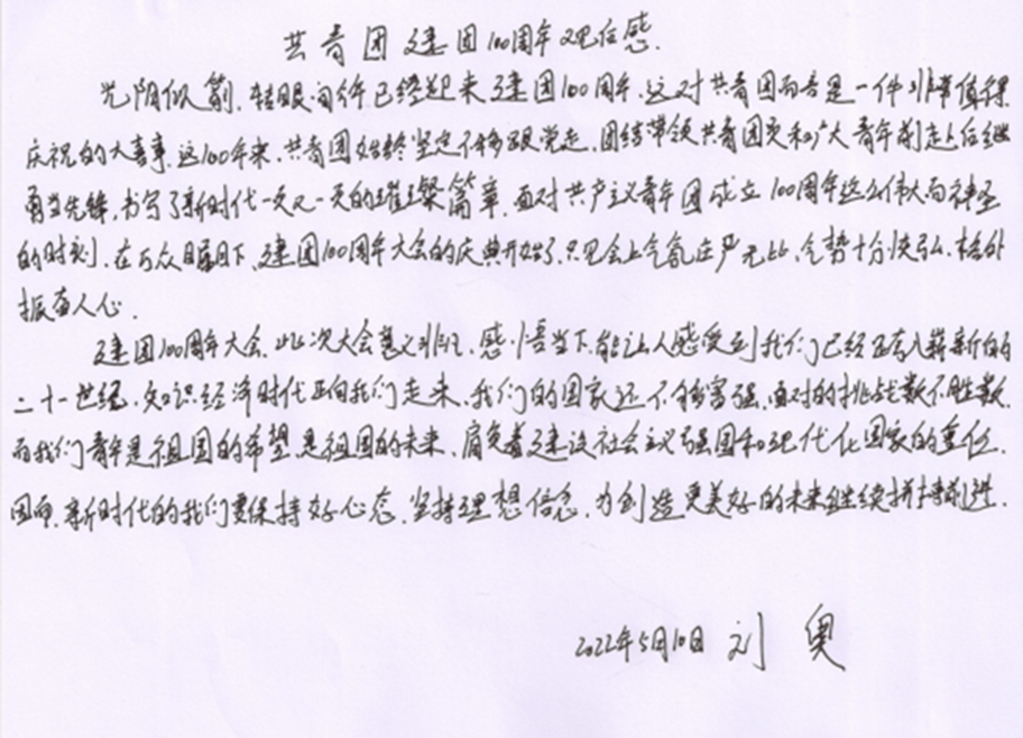 共青团建团100周年观后感.
光阴似箭,转眼间今年已经迎来建团100周年,这对共青团而言是一件非常值得
庆祝的大喜事,这100年来,共青团始终坚定不移跟党走,团结带领共青团员和广大青年前赴后继
勇当先锋,书写了新时代一页又一页的璀璨篇章,面对共产主义青年团成立100周年这么伟大而神圣
的时刻,在万众瞩目下,建团100周年大会的庆典开始了,只见会上气氛庄严无比,气势十分恢弘,格外
振奋人心.
建团100周年大会,此次大会意义非凡,感悟当下,能让人感受到我们已经迈入崭新的
二十一世纪,知识经济时代正向我们走来,我们的国家还不够富强,面对的挑战数不胜数,
而我们青年是祖国的希望,是祖国的未来,肩负着建设社会主义强国和现代化国家的重任,
因而,新时代的我们要保持好心态,坚持理想信念,为创造更美好的未来继续拼搏前进.
2022年5月10日 刘奥